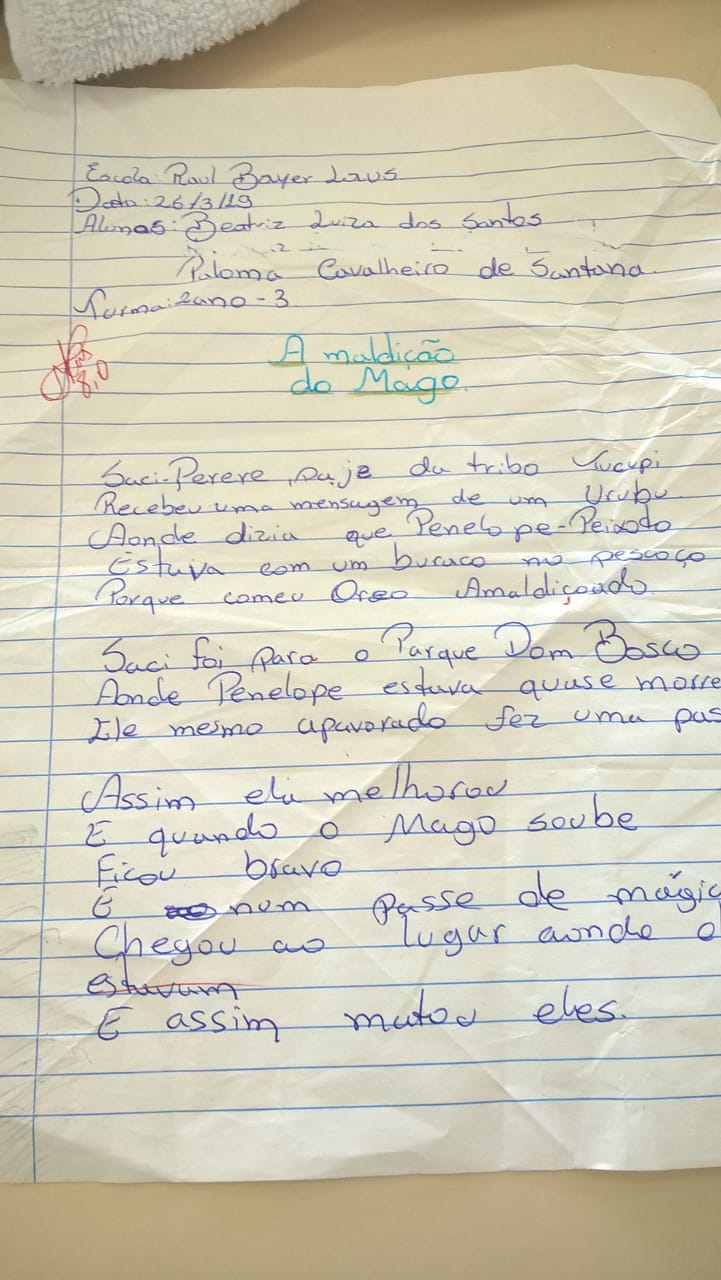 Escola Raul Bayer Laus
Data: 26/3/19
Alunas: Beatriz Luiza dos Santos
Paloma Cavalheiro de Santana
Turma: 2ano-3
8,0
A maldição
do Mago.
Saci-Perere, paje da tribo Tucupi
Recebeu uma mensagem de um Urubu
Aonde dizia que Penelope-Peixoto
Estava com um buraco no pescoço
Porque comeu Oreo Amaldiçoado
Saci foi para o Parque Dom Bosco
Aonde Penelope estava quase morre
Ele mesmo apavorado fez uma pas
Assim ela melhorou
E quando o Mago soube
Ficou bravo
E num passe de mágic
Chegou ao lugar aonde e
estavam
E assim matou eles.